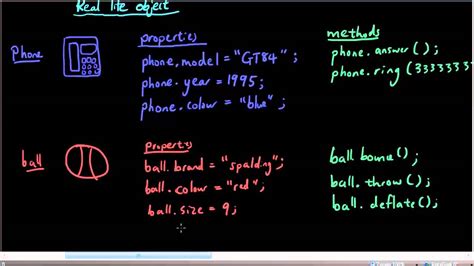 Real life object
properties
methods
Phone
phone.model = "GT84";
phone.answer();
phone.year = 1995;
phone.ring (3333333
phone.colour = "blue";
properties
ball
ball.brand = "spaldng";
ball bounce();
ball.colour = "red";
ball.throw();
ball.size = 9;
ball.deflate();